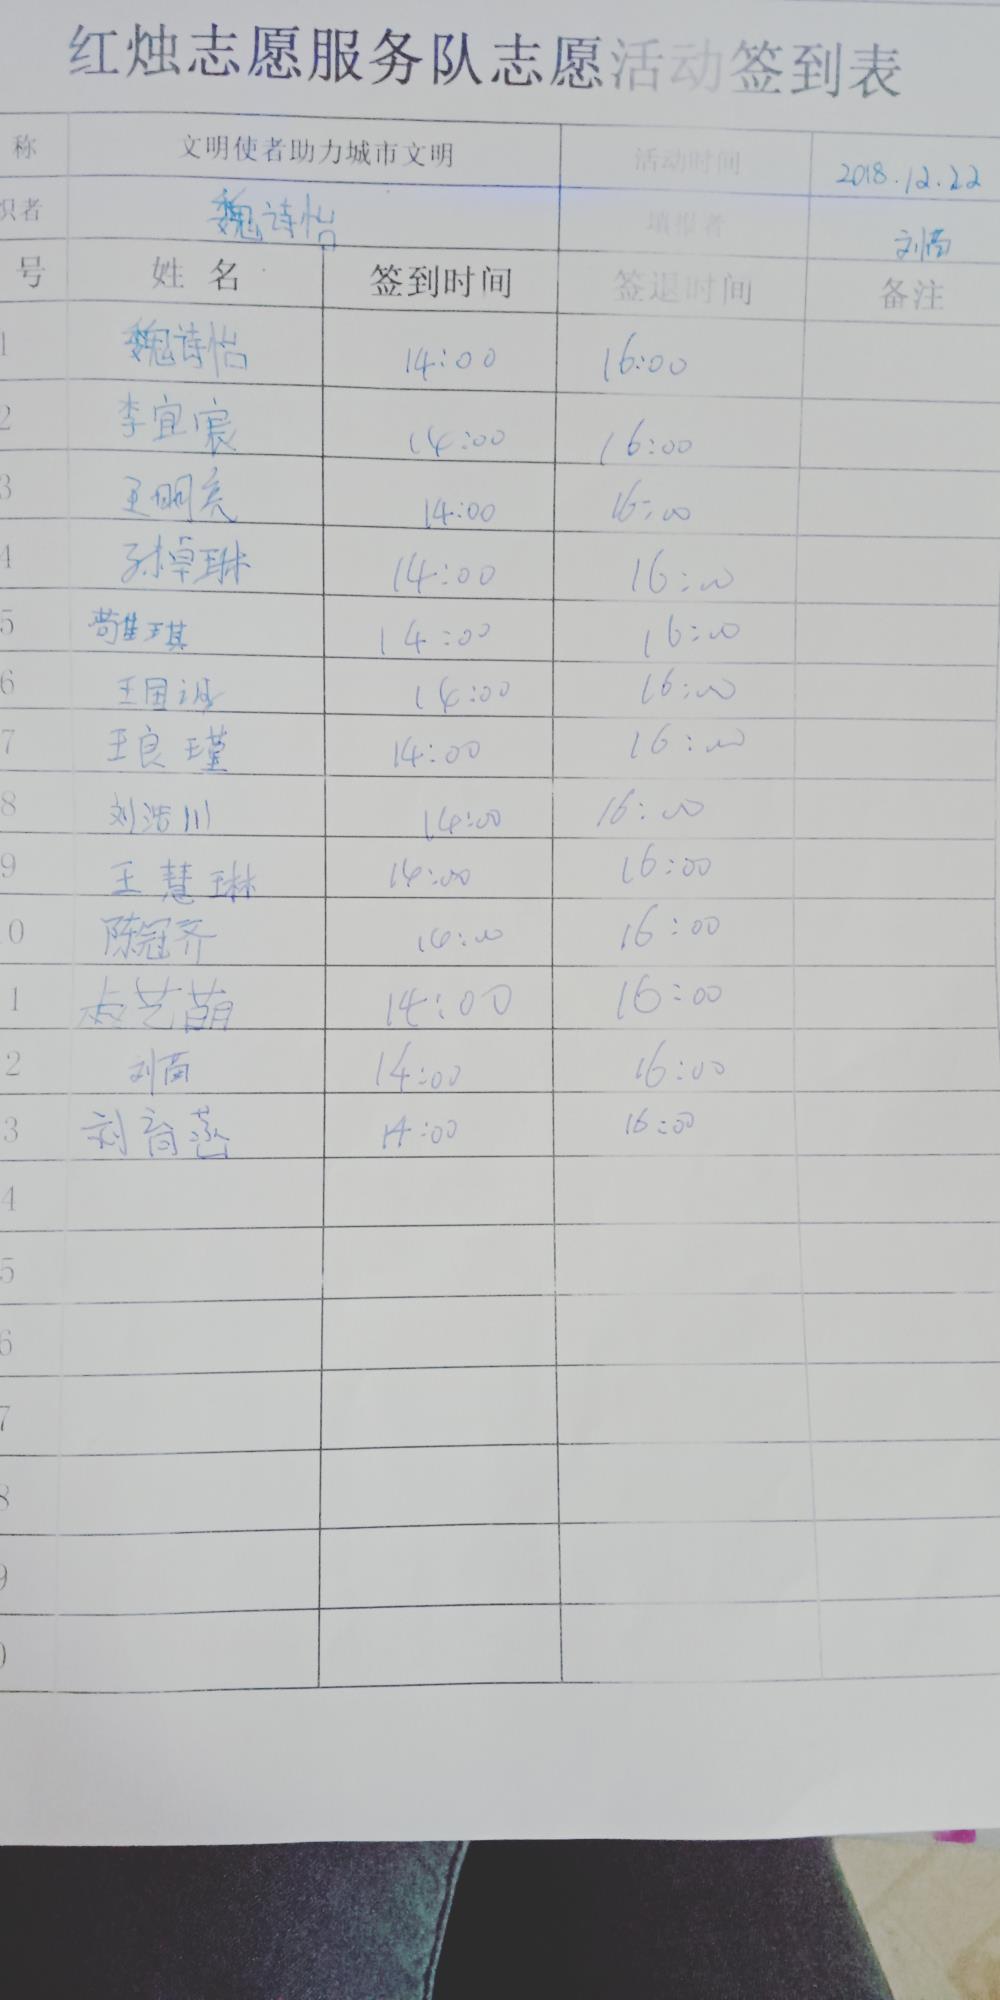 红烛志愿服务队志愿活动签到表
称 文明使者助力城市文明 活动时间 2018.12.22
织者 魏诗怡 填报者 刘茵
号 姓名 签到时间 签退时间 备注
1 魏诗怡 14:00 16:00
2 李宜宸 14:00 16:00
3 王明亮 14:00 16:00
4 孙卓琳 14:00 16:00
5 琪 14:00 16:00
6 王国诚 14:00 16:00
7 王良瑾 14:00 16:00
8 刘浩川 14:00 16:00
9 王慧琳 14:00 16:00
0 陈冠齐 14:00 16:00
1 艺萌 14:00 16:00
2 刘茵 14:00 16:00
3 刘育涵 14:00 16:00
4
5
6
7
8
9
0